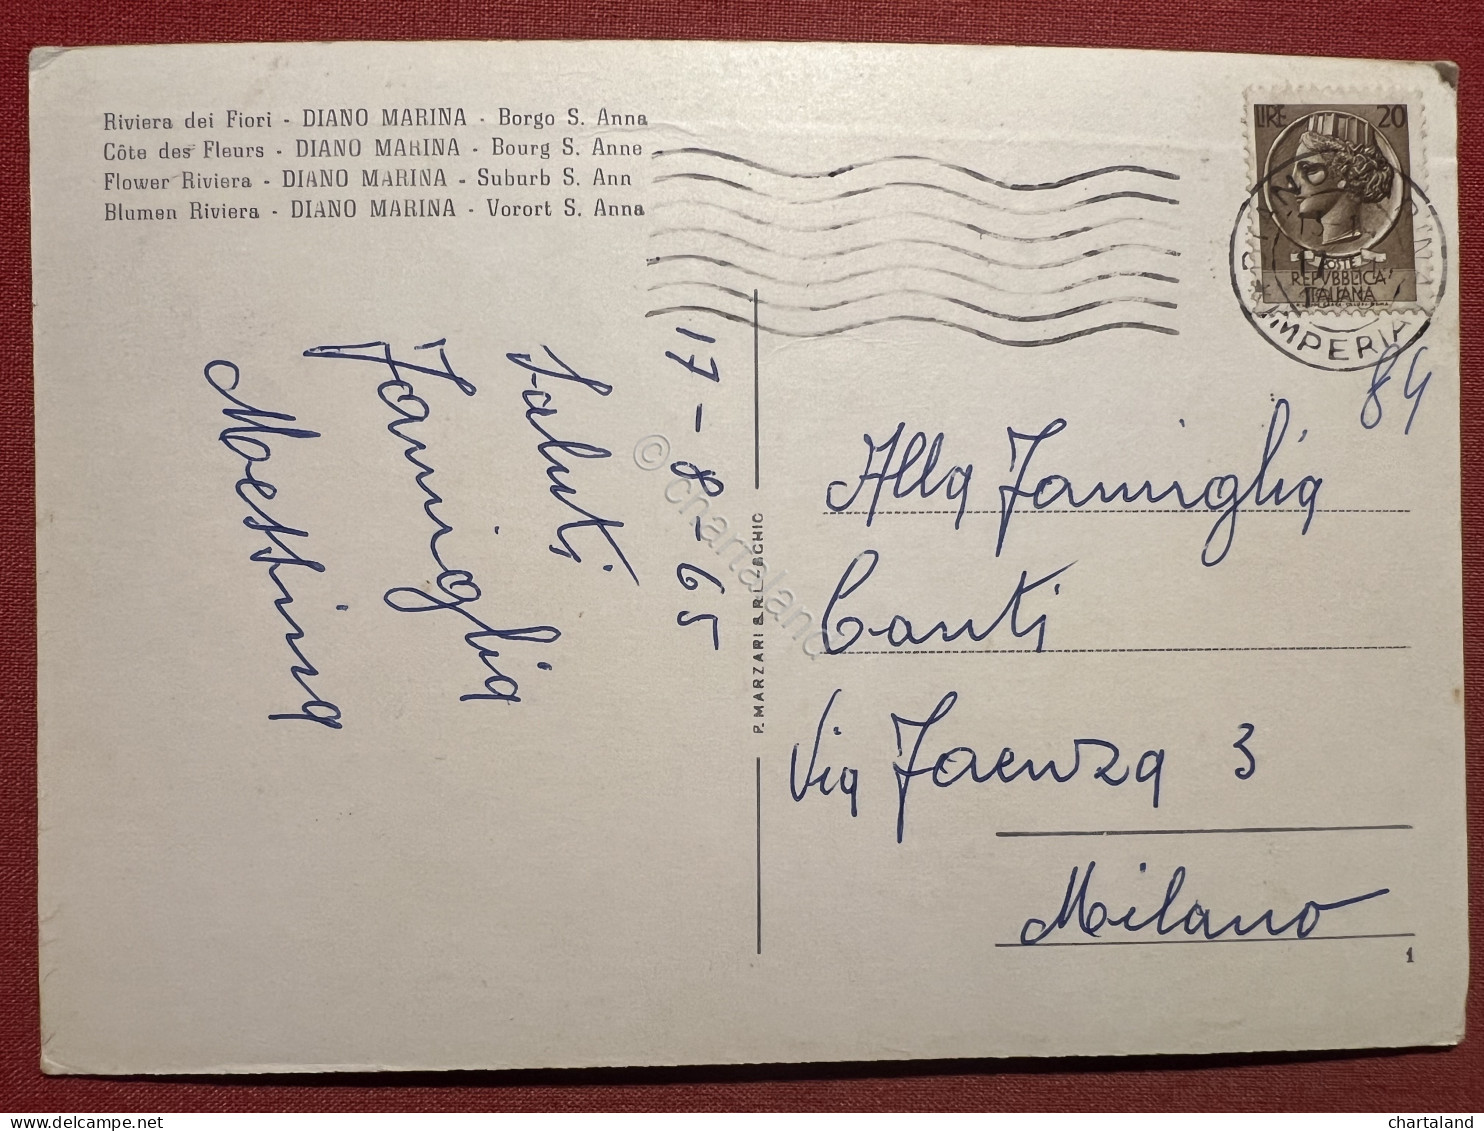 Riviera dei Fiori - DIANO MARINA - Borgo S. Anna
Côte des Fleurs - DIANO MARINA - Bourg S. Anne
Flower Riviera - DIANO MARINA - Suburb S. Ann
Blumen Riviera - DIANO MARINA - Vorort S. Anna
LIRE 20
POSTE
REPVBBLICA
ITALIANA
* IMPERIA
84
17-8-65
Saluti
Famiglia
Messina
P. MARZARI S.R.L.-SCHIO
© chartaland
Alla Famiglia
Canti
Via Faenza 3
Milano
1
chartaland